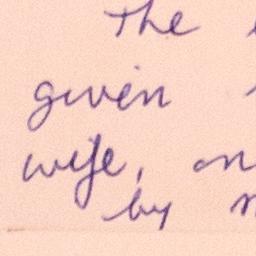 The
given
wife, on
by